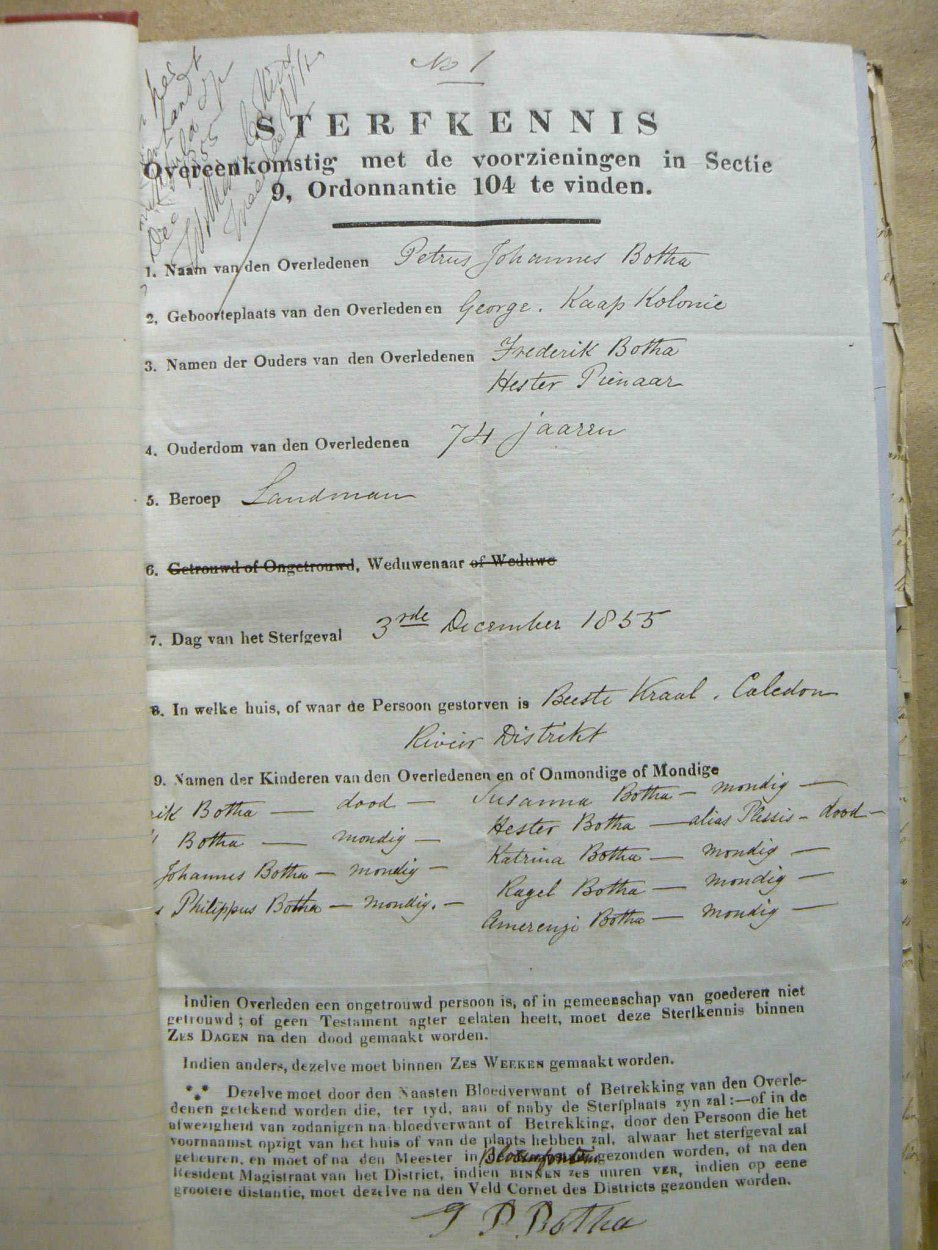 No 1
STERFKENNIS
Overeenkomstig met de voorzieningen in Sectie
9, Ordonnantie 104 te vinden.
1. Naam van den Overledenen Petrus Johannes Botha
2, Geboorteplaats van den Overledenen George. Kaap Kolonie
3. Namen der Ouders van den Overledenen Frederik Botha
Hester Pienaar
4. Ouderdom van den Overledenen 74 jaaren
5. Beroep Landman
6. Getrouwd of Ongetrouwd, Weduwenaar of Weduwe
7. Dag van het Sterfgeval 3rde December 1855
8. In welke huis, of waar de Persoon gestorven is Beeste Kraal. Caledon
Rivier Distrikt
9. Namen der Kinderen van den Overledenen en of Onmondige of Mondige
rik Botha — dood — Susanna Botha — mondig —
Botha — mondig — Hester Botha — alias Plessis — dood —
Johannes Botha — mondig — Katrina Botha — mondig —
s Philippus Botha — mondig. — Ragel Botha — mondig —
Amerenzi Botha — mondig —
Indien Overleden een ongetrouwd persoon is, of in gemeenschap van goederen niet
getrouwd; of geen Testament agter gelaten heeft, moet deze Sterfkennis binnen
ZES DAGEN na den dood gemaakt worden.
Indien anders, dezelve moet binnen ZES WEEKEN gemaakt worden.
Dezelve moet door den Naasten Bloedverwant of Betrekking van den Overle-
denen getekend worden die, ter tyd, aan of naby de Sterfplaats zyn zal:—of in de
afwezigheid van zodanigen na-bloedverwant of Betrekking, door den Persoon die het
voornaamst opzigt van het huis of van de plaats hebben zal, alwaar het sterfgeval zal
gebeuren, en moet of na den Meester in Bloemfontein gezonden worden, of na den
Resident Magistraat van het District, indien BINNEN ZES UUREN VER, indien op eene
grootere distantie, moet dezelve na den Veld Cornet des Districts gezonden worden.
P Botha